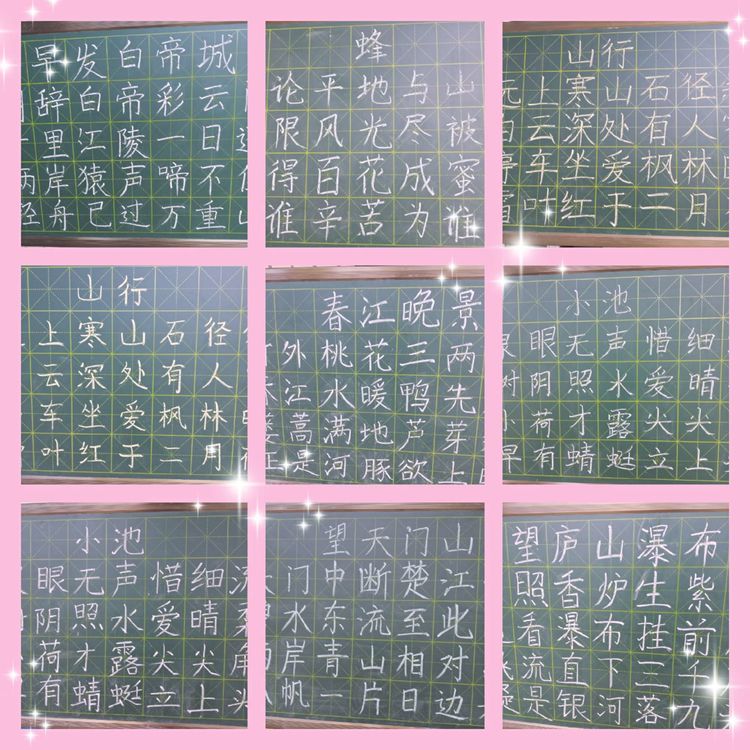 早发白帝城
辞白帝彩云
里江陵一日
两岸猿声啼不
轻舟已过万重
蜂
论平地与山
限风光尽被
得百花成蜜
谁辛苦为谁
山行
上寒山石径
白云深处有人
停车坐爱枫林
霜叶红于二月
山行
上寒山石径
云深处有人
车坐爱枫林
叶红于二月
春江晚景
外桃花三两
江水暖鸭先
蒌蒿满地芦芽
是河豚欲上
小池
眼无声惜细
阴照水爱晴
小荷才露尖尖
早有蜻蜓立上
小池
眼无声惜细
阴照水爱晴
荷才露尖尖角
有蜻蜓立上头
望天门山
门中断楚江
水东流至此
岸青山相对
帆一片日边
望庐山瀑布
照香炉生紫
看瀑布挂前
流直下三千
是银河落九